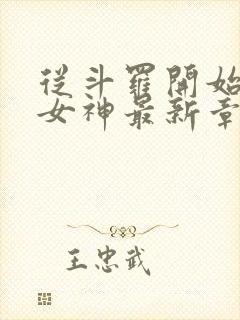 從斗羅開始
女神最新章
王忠武